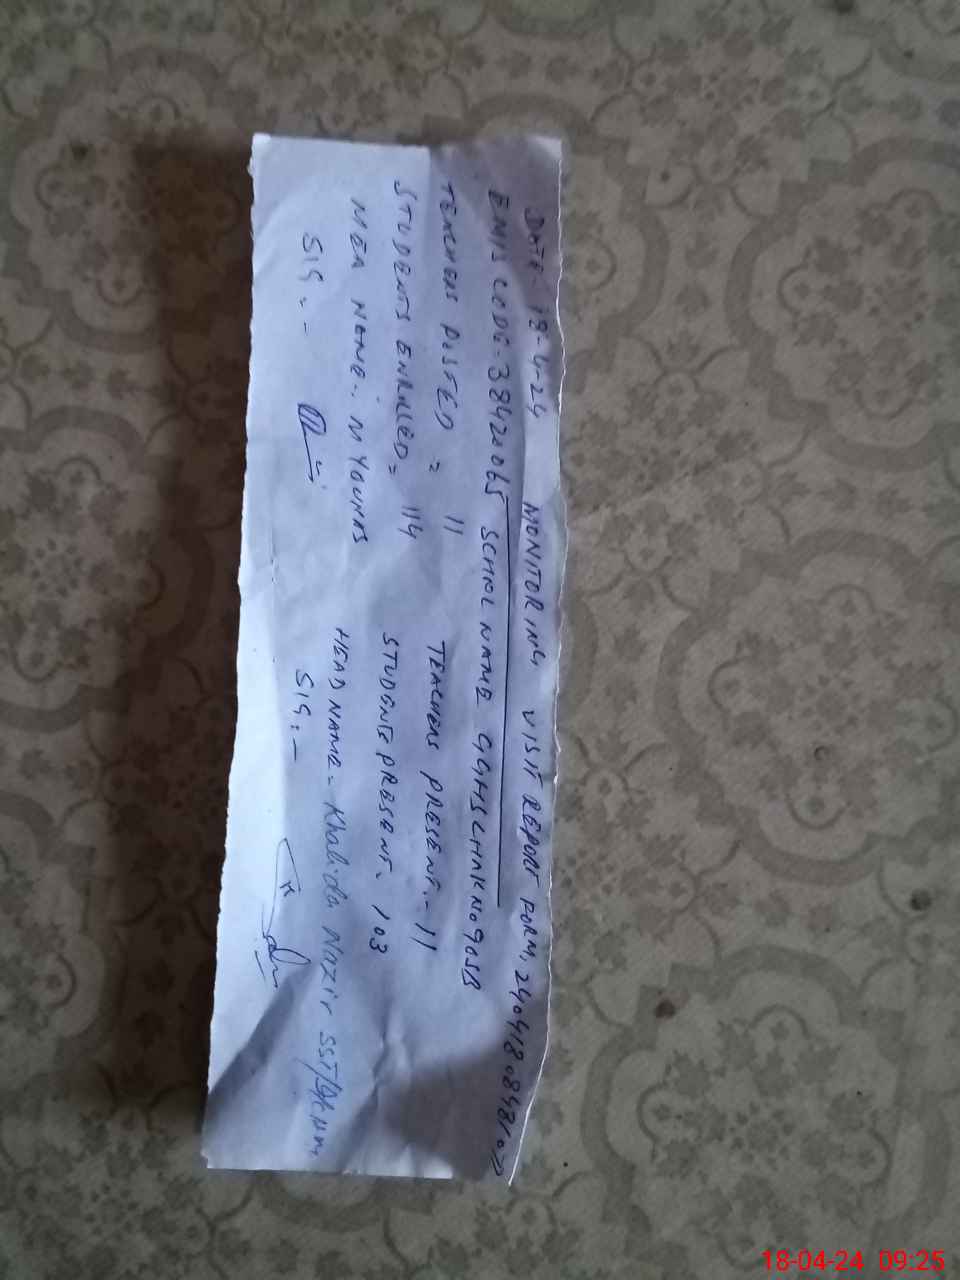 DATE - 18-4-24 MONITORING VISIT REPORT FORM, 240418084810
EMIS CODE - 38420065 SCHOL NAME GGHS CHAK NO 90SB
TEACHERS POSTED = 11 TEACHERS PRESENT. - 11
STUDENTS ENRLLED = 114 STUDENTS PRESENT. 103
MEA NAME. M YOUNAS HEAD NAME - Khalida Nazir SST
SIG. - SIG: -
18-04-24 09:25